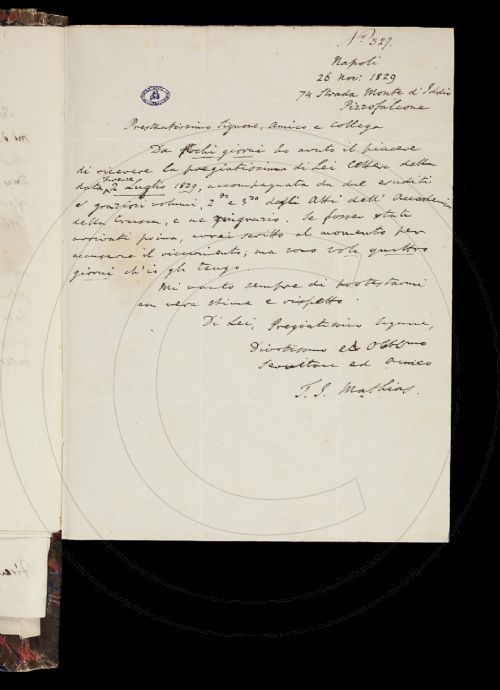 No. 327.
Napoli
26 Nov: 1829
74 Strada Monte d'Iddio
Pizzofalcone
Prestantissimo Signore, Amico e Collega
Da pochi giorni ho avuto il piacere
di ricevere la pregiatissima di Lei Lettera della
data, Firenze 2 Luglio 1829, accompagnata da due eruditi
e graziosi volumi, 2do e 3zo degli Atti dell' Accademia
della Crusca, e ne ringrazio. Se fosser stati
arrivati prima, avrei scritto al momento per
accusarne il ricevimento; ma sono soli quattro
giorni ch'io gli tengo.
Mi vanto sempre di protestarmi
con vera stima e rispetto
Di Lei, Pregiatissimo Signore,
Divotissimo ed Obbmo
Servitore ed Amico
T. J. Mathias.